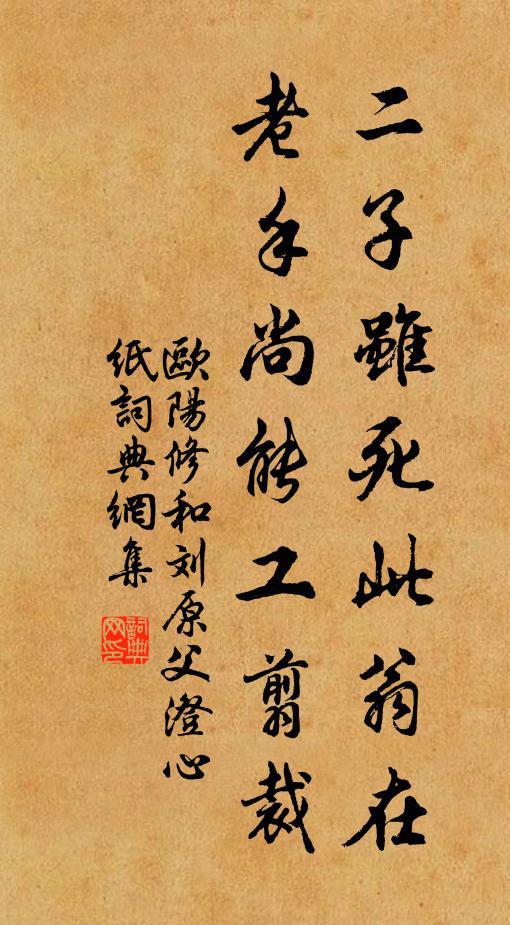 二子雖死此翁在
老手尚能工剪裁
歐陽修和刘原父澄心
紙詞典網集
詞典
网印